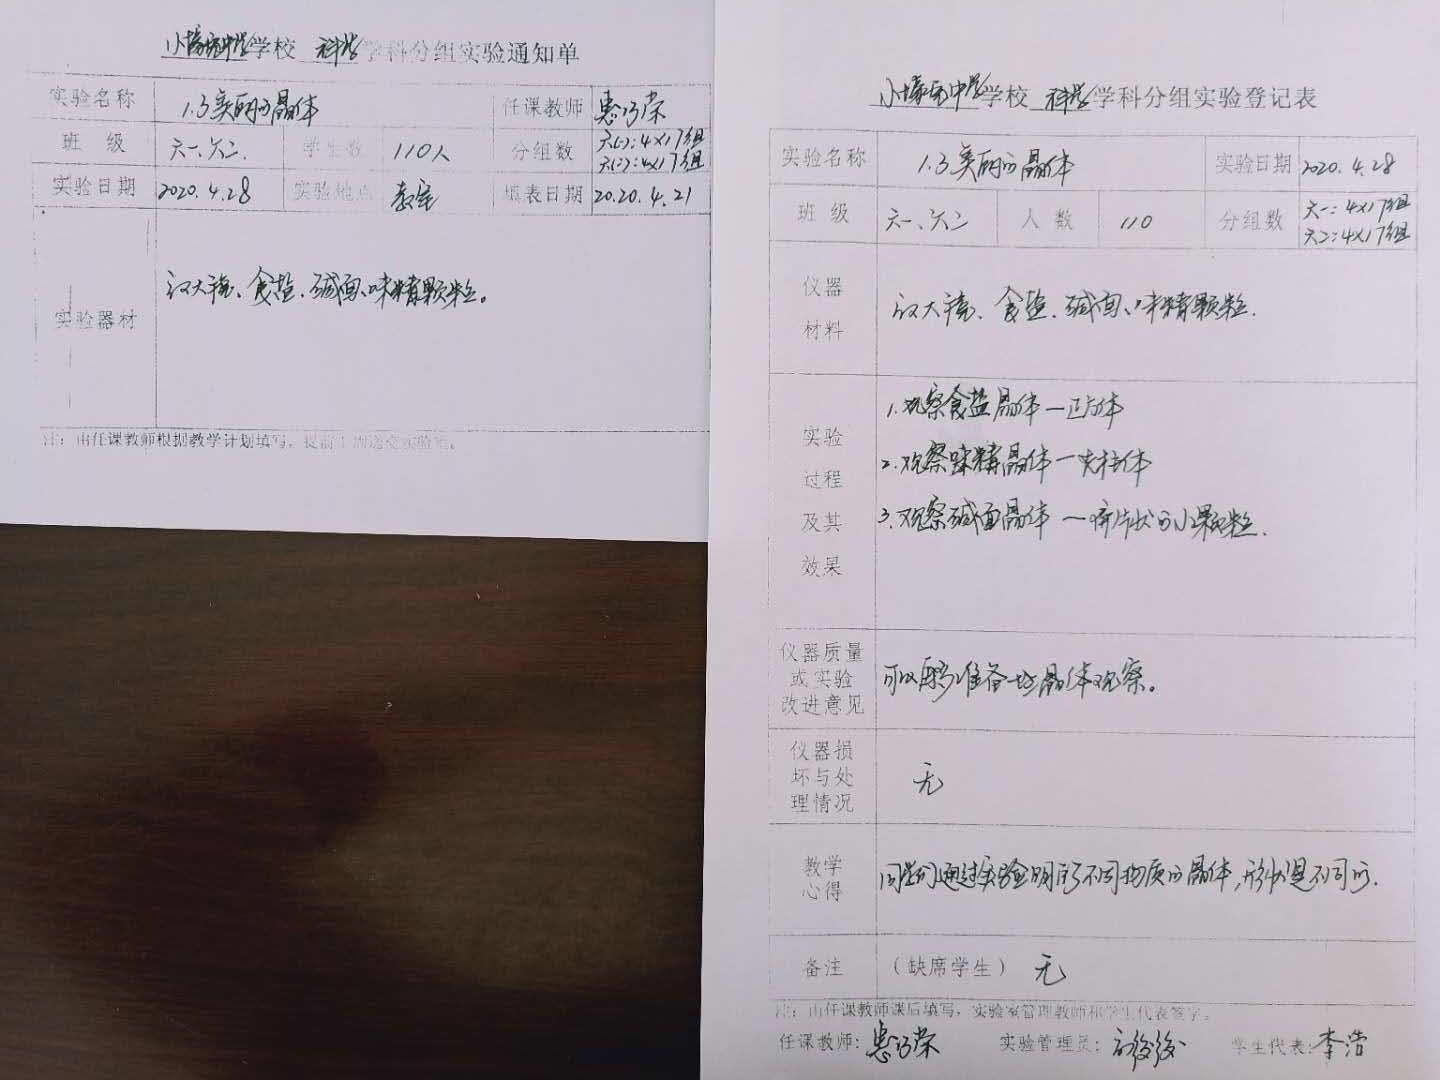 学校 科学 学科分组实验通知单
实验名称 1.3美丽的晶体 任课教师 惠巧荣
班 级 六一、六二. 学生数 110人 分组数 六(一):4×17组
六(二):4×17组
实验日期 2020.4.28 实验地点 教室 填表日期 2020.4.21
实验器材 放大镜、食盐、碱面、味精颗粒。
注：由任课教师根据教学计划填写，提前1周送交实验室。
中学学校 科学 学科分组实验登记表
实验名称 1.3美丽的晶体 实验日期 2020.4.28
班 级 六一、六二 人 数 110 分组数 六一:4×17组
六二:4×17组
仪器
材料
放大镜、食盐、碱面、味精颗粒.
实验
过程
及其
效果
1.观察食盐晶体—正方体
2.观察味精晶体—光柱体
3.观察碱面晶体—片状的小颗粒.
仪器质量
或实验
改进意见
可以再多准备一些晶体观察。
仪器损
坏与处
理情况
无
教学
心得
同学们通过实验明白了不同物质的晶体,形状是不同的.
备注 （缺席学生） 无
注：由任课教师课后填写，实验室管理教师和学生代表签字。
任课教师: 惠巧荣 实验管理员: 学生代表: 李浩